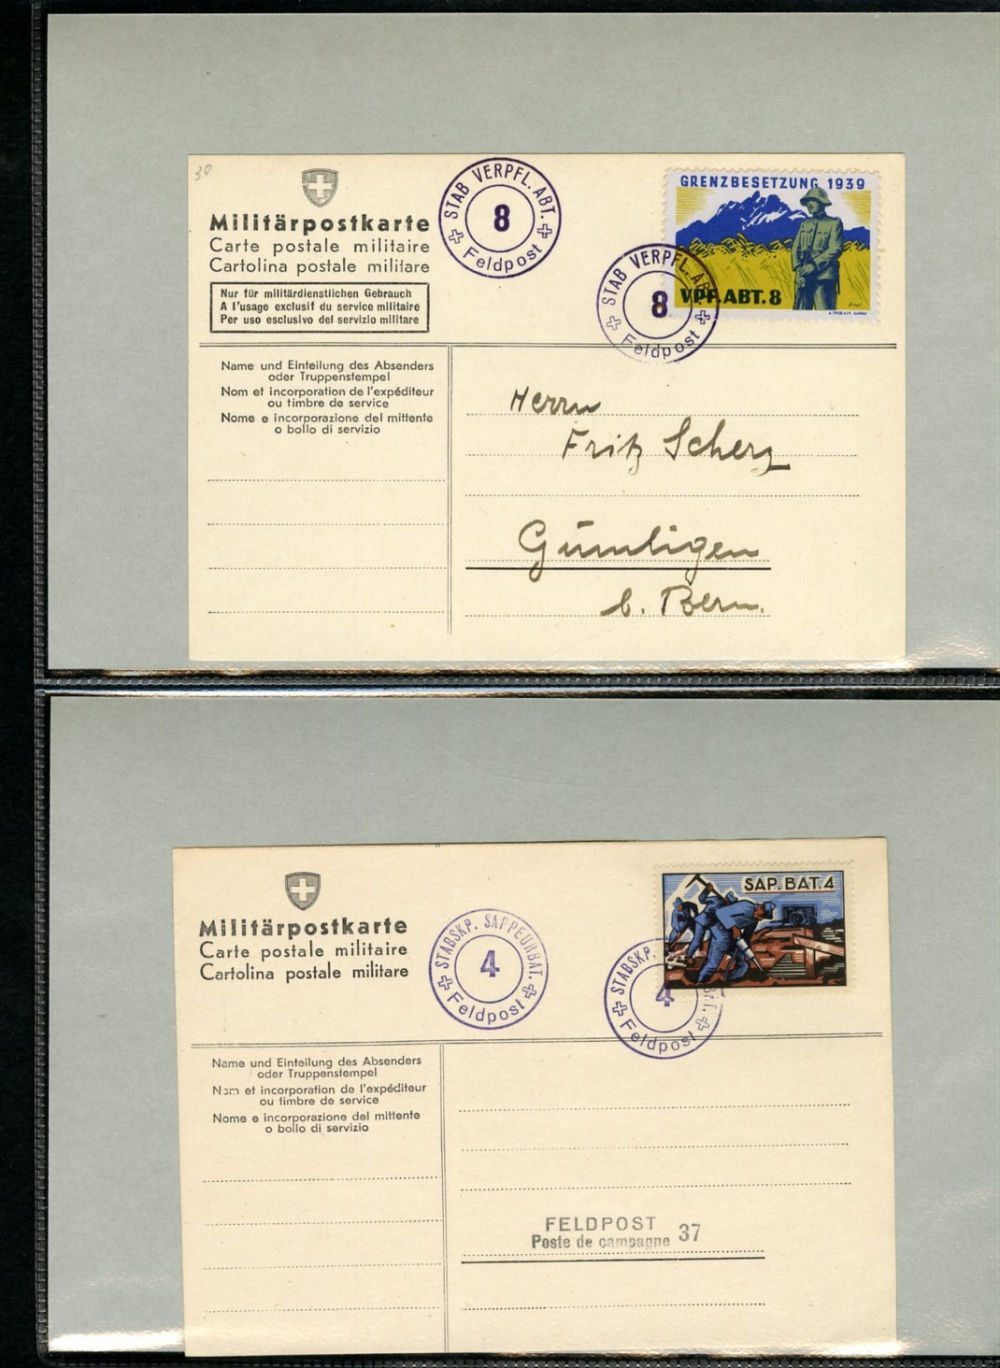 30
Militärpostkarte
Carte postale militaire
Cartolina postale militare
Nur für militärdienstlichen Gebrauch
A l'usage exclusif du service militaire
Per uso esclusivo del servizio militare
STAB VERPFL. ABT.
8
Feldpost
GRENZBESETZUNG 1939
VPF. ABT. 8
STAB VERPFL. ABT.
8
Feldpost
Name und Einteilung des Absenders
oder Truppenstempel
Nom et incorporation de l'expéditeur
ou timbre de service
Nome e incorporazione del mittente
o bollo di servizio
Herrn
Fritz Scherz
Gümligen
b. Bern.
Militärpostkarte
Carte postale militaire
Cartolina postale militare
STABSKP. SAPPEURBAT.
4
Feldpost
SAP. BAT. 4
STABSKP.
BAT.
4
Feldpost
Name und Einteilung des Absenders
oder Truppenstempel
Nom et incorporation de l'expéditeur
ou timbre de service
Nome e incorporazione del mittente
o bollo di servizio
FELDPOST
Poste de campagne 37